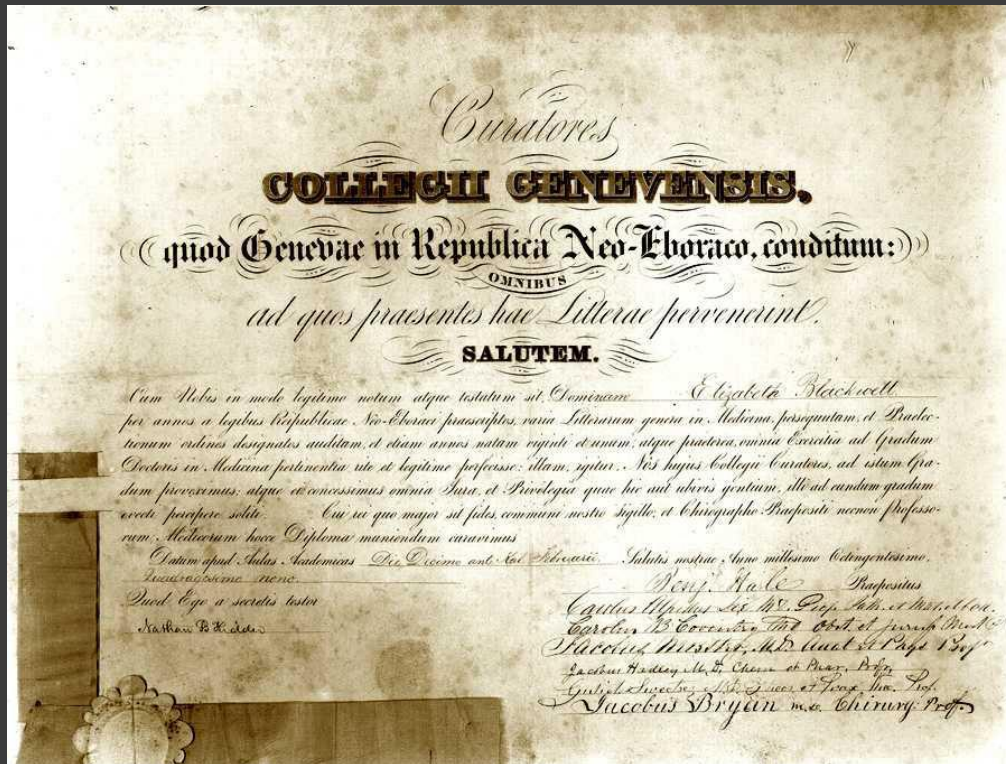 Curatores
COLLEGII GENEVENSIS,
quod Genevae in Republica Neo-Eboraco, conditum:
OMNIBUS
ad quos praesentes hae Litterae pervenerint,
SALUTEM.
Cum Nobis in modo legitimo notum atque testatum sit, Dominam Elizabeth Blackwell
per annos a legibus Reipublicae Neo-Eboraci praescriptos, varia Litterarum genera in Medicina, persequutam, et Praelec-
tionum ordines designatos auditam, et etiam annos natam viginti et unum, atque praeterea, omnia Exercitia ad Gradum
Doctoris in Medicina pertinentia rite et legitimo perfecisse; illam, igitur, Nos hujus Collegii Curatores, ad istum Gra-
dum proveximus, atque ei concessimus omnia Jura, et Privilegia quae hic aut ubivis gentium, illo ad eundum gradum
evecti percipere soliti Cui rei quo major sit fides, communi nostro Sigillo, et Chirographo Praepositi necnon Professo-
rum Medicorum hocce Diploma muniendum curavimus
Datum apud Aulas Academicas Die Decimo ant. Kal Februarii Salutis nostrae Anno millesimo Octengentesimo,
Quadragesimo nono.
Benj. Hale Praepositus
Quod Ego a secretis testor
Lee MD. Prof.
Nathan B Kidder
Carolus B Coventry MD Obst et Jurisp
Jacobus Webster, M.D. Anat et Phys Prof
Jacobus Hadley M.D. Chem et Phar. Prof
Sweetser Prof.
Jacobus Bryan M.D. Chirurg Prof.